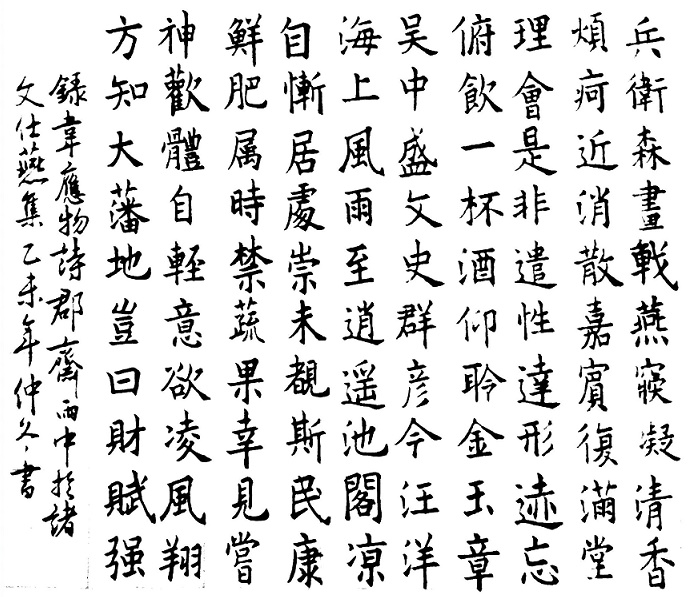 兵衛森畫戟燕寢凝清香
煩疴近消散嘉賓復滿堂
理會是非遣性達形迹忘
俯飲一杯酒仰聆金玉章
吴中盛文史群彦今汪洋
海上風雨至逍遥池閣凉
自慚居處崇未覩斯民康
鮮肥属時禁蔬果幸見嘗
神歡體自輕意欲凌風翔
方知大藩地豈曰財賦强
録韋應物詩郡齋雨中於諸
文仕燕集乙未年仲冬書